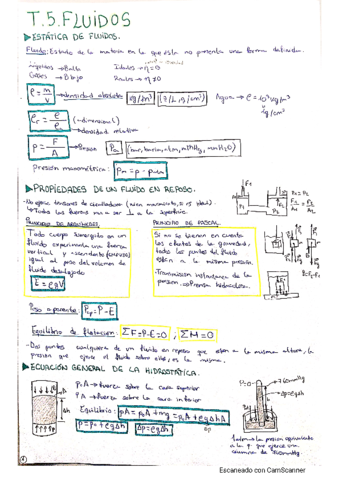 T.5. FLUIDOS
▶ ESTÁTICA DE FLUIDOS.
Fluido: Estado de la materia en la que ésta no presenta una forma definida.
Líquidos → B alto
Gases → B bajo
Ideales → η=0
Reales → η≠0
ρ = m/V → densidad absoluta (kg/dm³) (1 / L, g/cm³) Agua → ρ = 10³ kg/m³
1g/cm³
ρr = ρ/ρ₀ (adimensional)
→ densidad relativa
P = F/A → Presión Pa (bar, baria, atm, mmHg, mmH₂O)
Presión manométrica: Pm = P - Patm
▶ PROPIEDADES DE UN FLUIDO EN REPOSO.
- No ejerce tensiones de cizalladura
↳ Todas las fuerzas van a ser ⊥ a la superficie.
PRINCIPIO DE ARQUÍMEDES
Todo cuerpo sumergido en un
fluido experimenta una fuerza
vertical y ascendente (empuje)
igual al peso del volumen de
fluido desalojado
E = ρgV
PRINCIPIO DE PASCAL
Si no se tienen en cuenta
los efectos de la gravedad,
todos los puntos del fluido
están a la misma presión.
- Transmisión instantánea de la
presión → Prensa hidráulica.
P₁ = P₂
F₁/A₁ = F₂/A₂
Peso aparente: Pr = P - E
Equilibrio de flotación: ΣF = P - E = 0 ; ΣM = 0
- Dos puntos cualquiera de un fluido en reposo que estén a la misma altura, la
presión que ejerce el fluido sobre ellos, es la misma.
▶ ECUACIÓN GENERAL DE LA HIDROSTÁTICA.
P₀A → fuerza sobre la cara superior
PA → fuerza sobre la cara inferior
Equilibrio: PA = P₀A + mg = P₀A + ρgΔhA
P = P₀ + ρgΔh Δp = ρgΔh
Δh
P=0
760mmHg
Δp = ρgh
1 atm es la presión equivalente
a la P que ejerce una
columna de 760mmHg
Escaneado con CamScanner